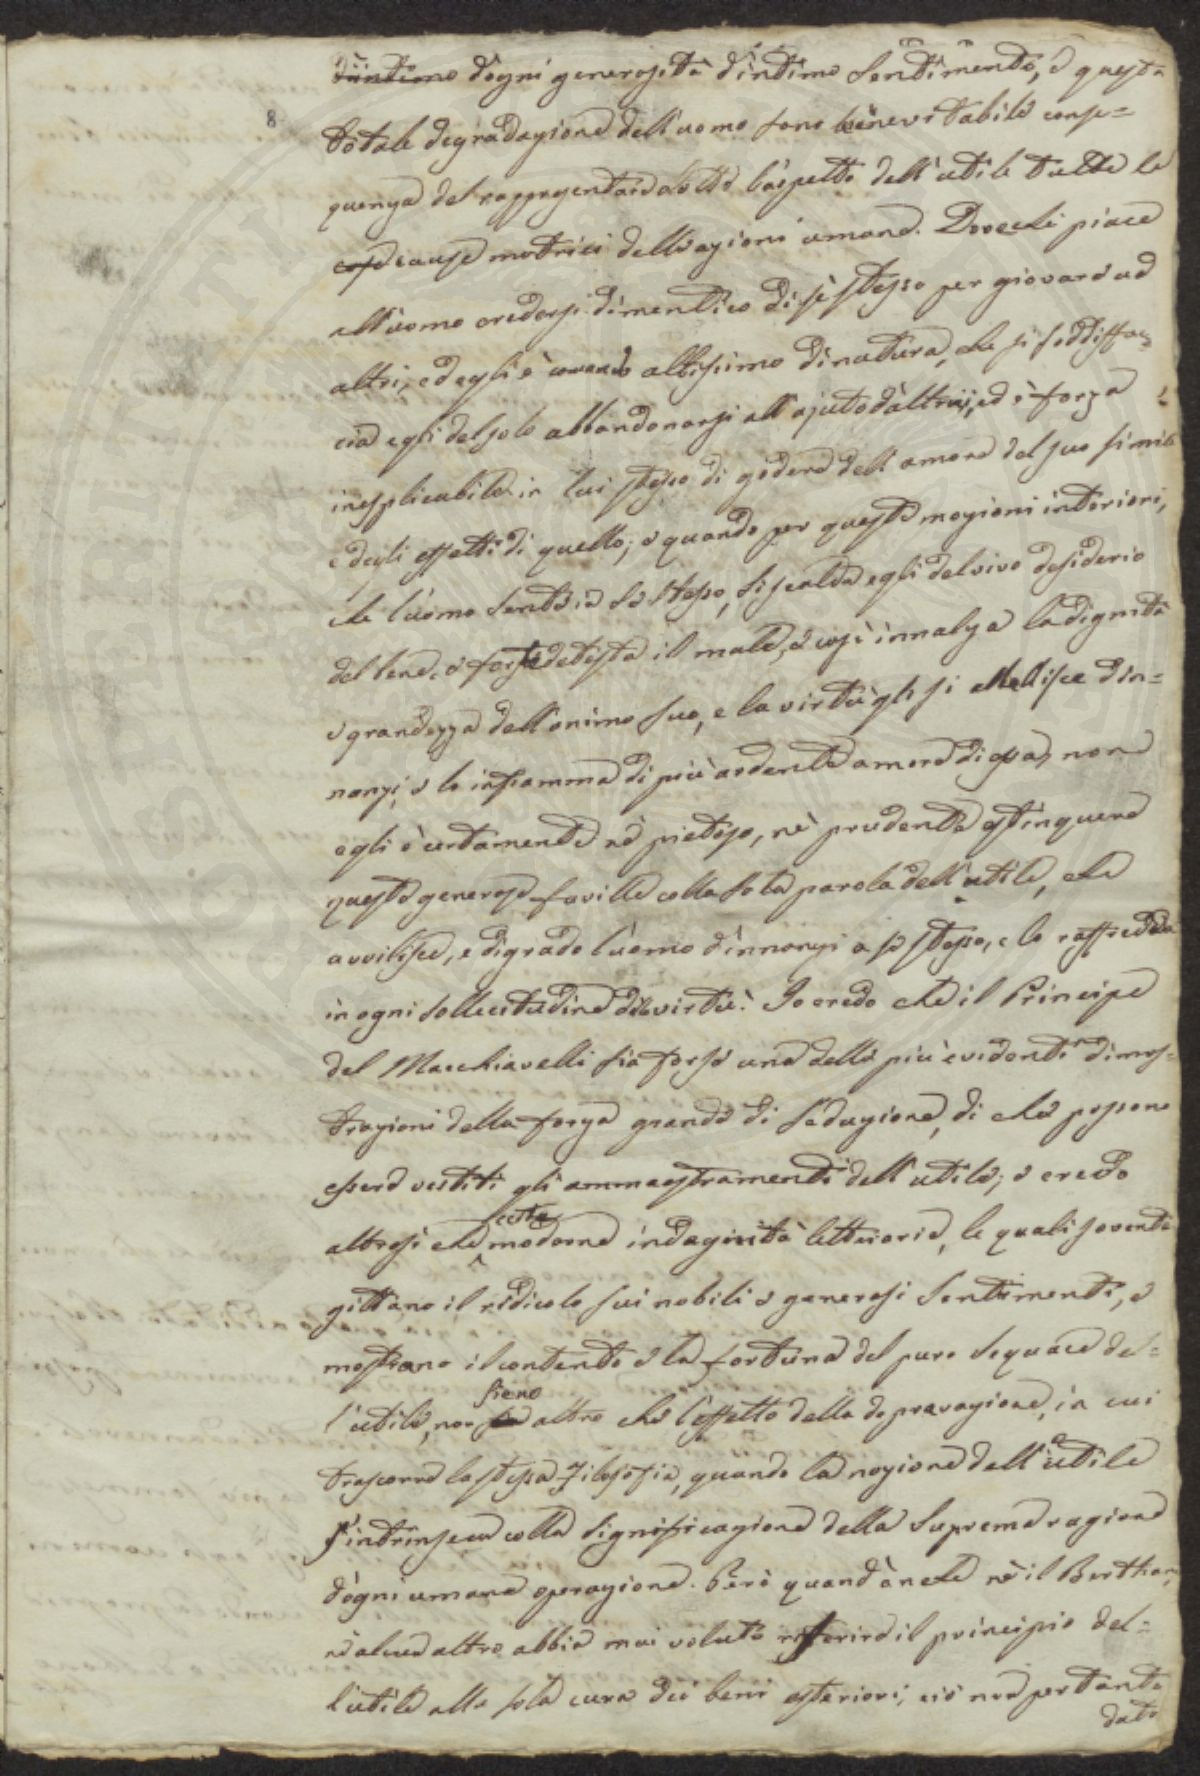 d'intimo d'ogni generosità d'intimo sentimento, e questa
8
totale degradazione dell'uomo sono inevitabile conse=
quenza del rappresentare sotto l'aspetto dell'utile tutte le
cose cause motrici delle azioni umane. Dovechè piace
all'uomo credersi dimentico di sè stesso per giovare ad
altri, ed egli è comando altissimo di natura, che si soddisfac=
cia egli del solo abbandonarsi all'ajuto d'altrui, ed è forza
inesplicabile in lui stesso di godere dell'amore del suo simile
e degli effetti di quello; e quando per queste mozioni interiori,
che l'uomo sente in se stesso, si scalda egli del vivo desiderio
del bene, e forte detesta il male, e così innalza la dignità
e grandezza dell'animo suo, e la virtù gli si abbellisce din=
nanzi, e lo infiamma di più ardente amore di essa, non
egli è certamente nè pietoso, nè prudente estinguere
queste generose faville colla sola parola dell'utile, che
avvilisce, e digrada l'uomo d'innanzi a se stesso, e lo raffredda
in ogni sollecitudine di virtù. Io credo che il Principe
del Macchiavelli sia forse una delle più evidenti dimos=
trazioni della forza grande di seduzione, di che possono
essere vestiti gli ammaestramenti dell'utile; e credo
altresì che certe moderne indagini letterarie, le quali sovente
gittano il ridicolo sui nobili e generosi sentimenti, e
mostrano il contento e la fortuna del puro seguace del=
l'utile, non sieno altro che l'effetto della depravazione, in cui
trascorre la stessa Filosofia, quando la nozione dell'utile
s'intrinseca colla significazione della suprema ragione
d'ogni umana operazione. Però quand'anche nè il Bentham,
nè alcun altro abbia mai voluto riferire il principio del=
l'utile alla sola cura dei beni esteriori, ciò non pertanto
dato